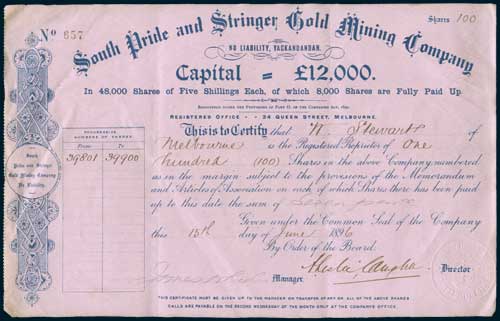 Shares 100
No 657
South Pride and Stringer Gold Mining Company
NO LIABILITY, YACKANDANDAH.
Capital = £12,000.
In 48,000 Shares of Five Shillings Each, of which 8,000 Shares are Fully Paid Up.
REGISTERED UNDER THE PROVISIONS OF PART II. OF THE COMPANIES ACT, 1890.
REGISTERED OFFICE - 34 QUEEN STREET, MELBOURNE.
PROGRESSIVE NUMBERS OF SHARES.
From To
39801 39900
South Pride and Stringer Gold Mining Company No Liability.
This is to Certify that W. Stewart of
Melbourne is the Registered Proprietor of One
hundred (100) Shares in the above Company numbered
as in the margin subject to the provisions of the Memorandum
and Articles of Association on each of which Shares there has been paid
up to this date the sum of pence
Given under the Common Seal of the Company
this 15th day of June 1896
By Order of the Board.
Manager. Director
THIS CERTIFICATE MUST BE GIVEN UP TO THE MANAGER ON TRANSFER OF ANY OR ALL OF THE ABOVE SHARES
CALLS ARE PAYABLE ON THE SECOND WEDNESDAY OF THE MONTH ONLY AT THE COMPANY'S OFFICE.